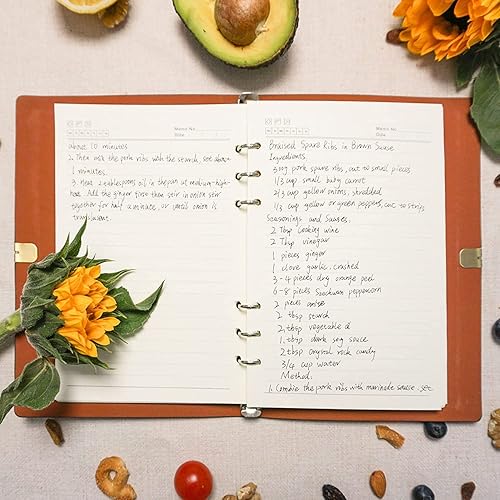 Memo No.
Date
about 10 minutes
2. Then the pork ribs with the search, set about
minutes.
3. Heat 2 tablespoons oil in the pan at medium-high-
heat. Add the ginger, then stir in onion stir
together for half a minute, or until onion is
translucent.
Memo No.
Date
Braised Spare Ribs in Brown Sause
Ingredients
pork spare ribs, cut to small pieces
1/3 cup small baby carrot
2/3 cup yellow onions, shredded
1/3 cup yellow or green peppers, cut to strips
Seasonings and Sauces.
2 Tbsp cooking wine
2 Tbsp vinegar
1 pieces ginger
1 clove garlic, crashed
3-4 pieces dry orange peel
6-8 pieces Szechwan peppercorn
2 pieces anise
2 tbsp starch
2 tbsp vegetable
1 tbsp dark soy sauce
2 tbsp crystal rock candy
3/4 cup water
Method.
1. Combine the pork ribs with marinade sause. set